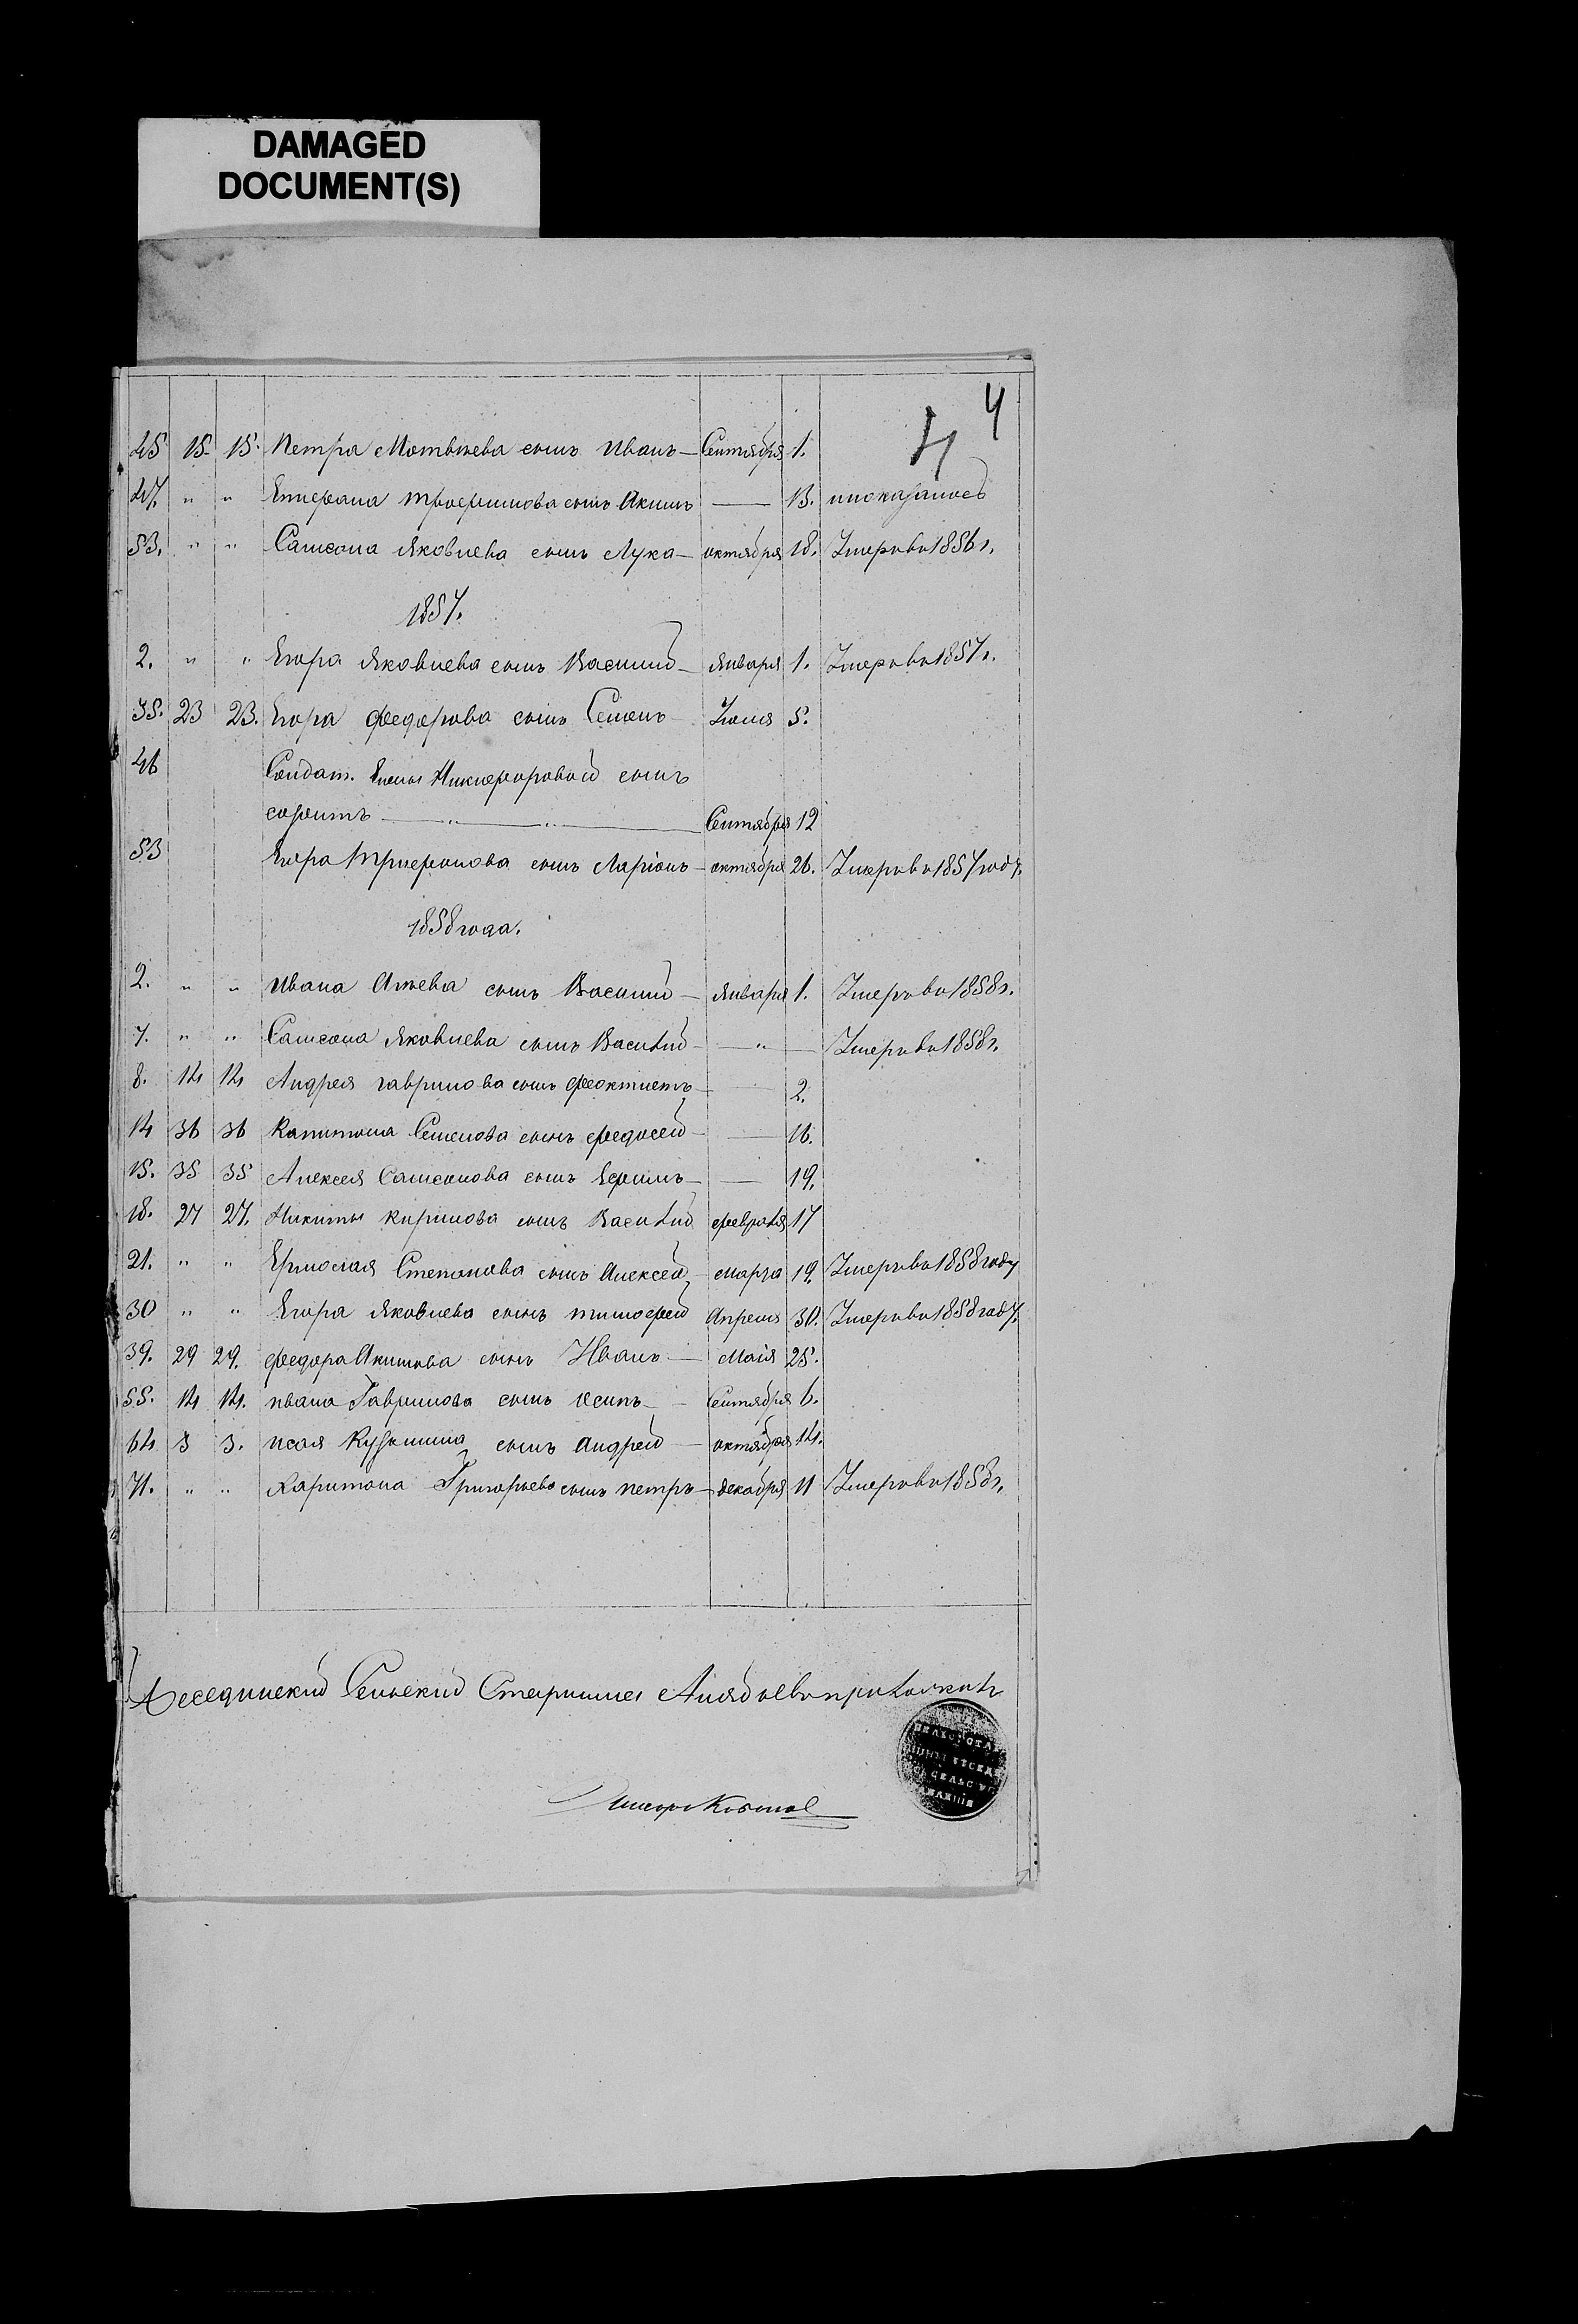 DAMAGED
DOCUMENT(S)
4
4
45 15. 15. Петра Матвѣева сынъ Иванъ — Сентября 1.
47. " " Епифана Трофимова сынъ Акимъ — 13. непоказанъ
53. " " Самсона Яковлева сынъ Лука — октября 18. Умеръ въ 1856 г.
1857.
2. " " Егора Яковлева сынъ Василий — января 1. Умеръ въ 1857 г.
35. 23 23. Егора Федорова сынъ Семенъ — Июля 5.
46 Солдат. Никифоровой сынъ
— " — " — Сентября 12
53 Егора Трифонова сынъ Ларіонъ — октября 26. Умеръ въ 1857 году.
1858 года.
2. " " Ивана сынъ Василий — января 1. Умеръ въ 1858 г.
7. " " Самсона Яковлева сынъ Василий — " — Умеръ въ 1858 г.
8. 14 14 Андрея гаврилова сынъ феоктистъ — 2.
14 36 36 Капитона Семенова сынъ федосей — 16.
15. 35 35 Алексея Самсонова сынъ Ефимъ — 19.
18. 27 27. Никиты Кирилова сынъ Василий февраля 17
21. " " Ермолая Степанова сынъ Алексей — марта 19. Умеръ въ 1858 году
30 " " Егора Яковлева сынъ тимофей Апреля 30. Умеръ въ 1858 году.
39. 29 29. федора Акимова сынъ Иванъ — Маія 25.
55. 14 14. ивана Гаврилова сынъ осипъ — Сентября 6.
64 3 3. исая Кузмина сынъ андрей — октября 14.
71. " " Харитона Григорьева сынъ петръ — декабря 11 Умеръ въ 1858 г.
Сельский Старшина